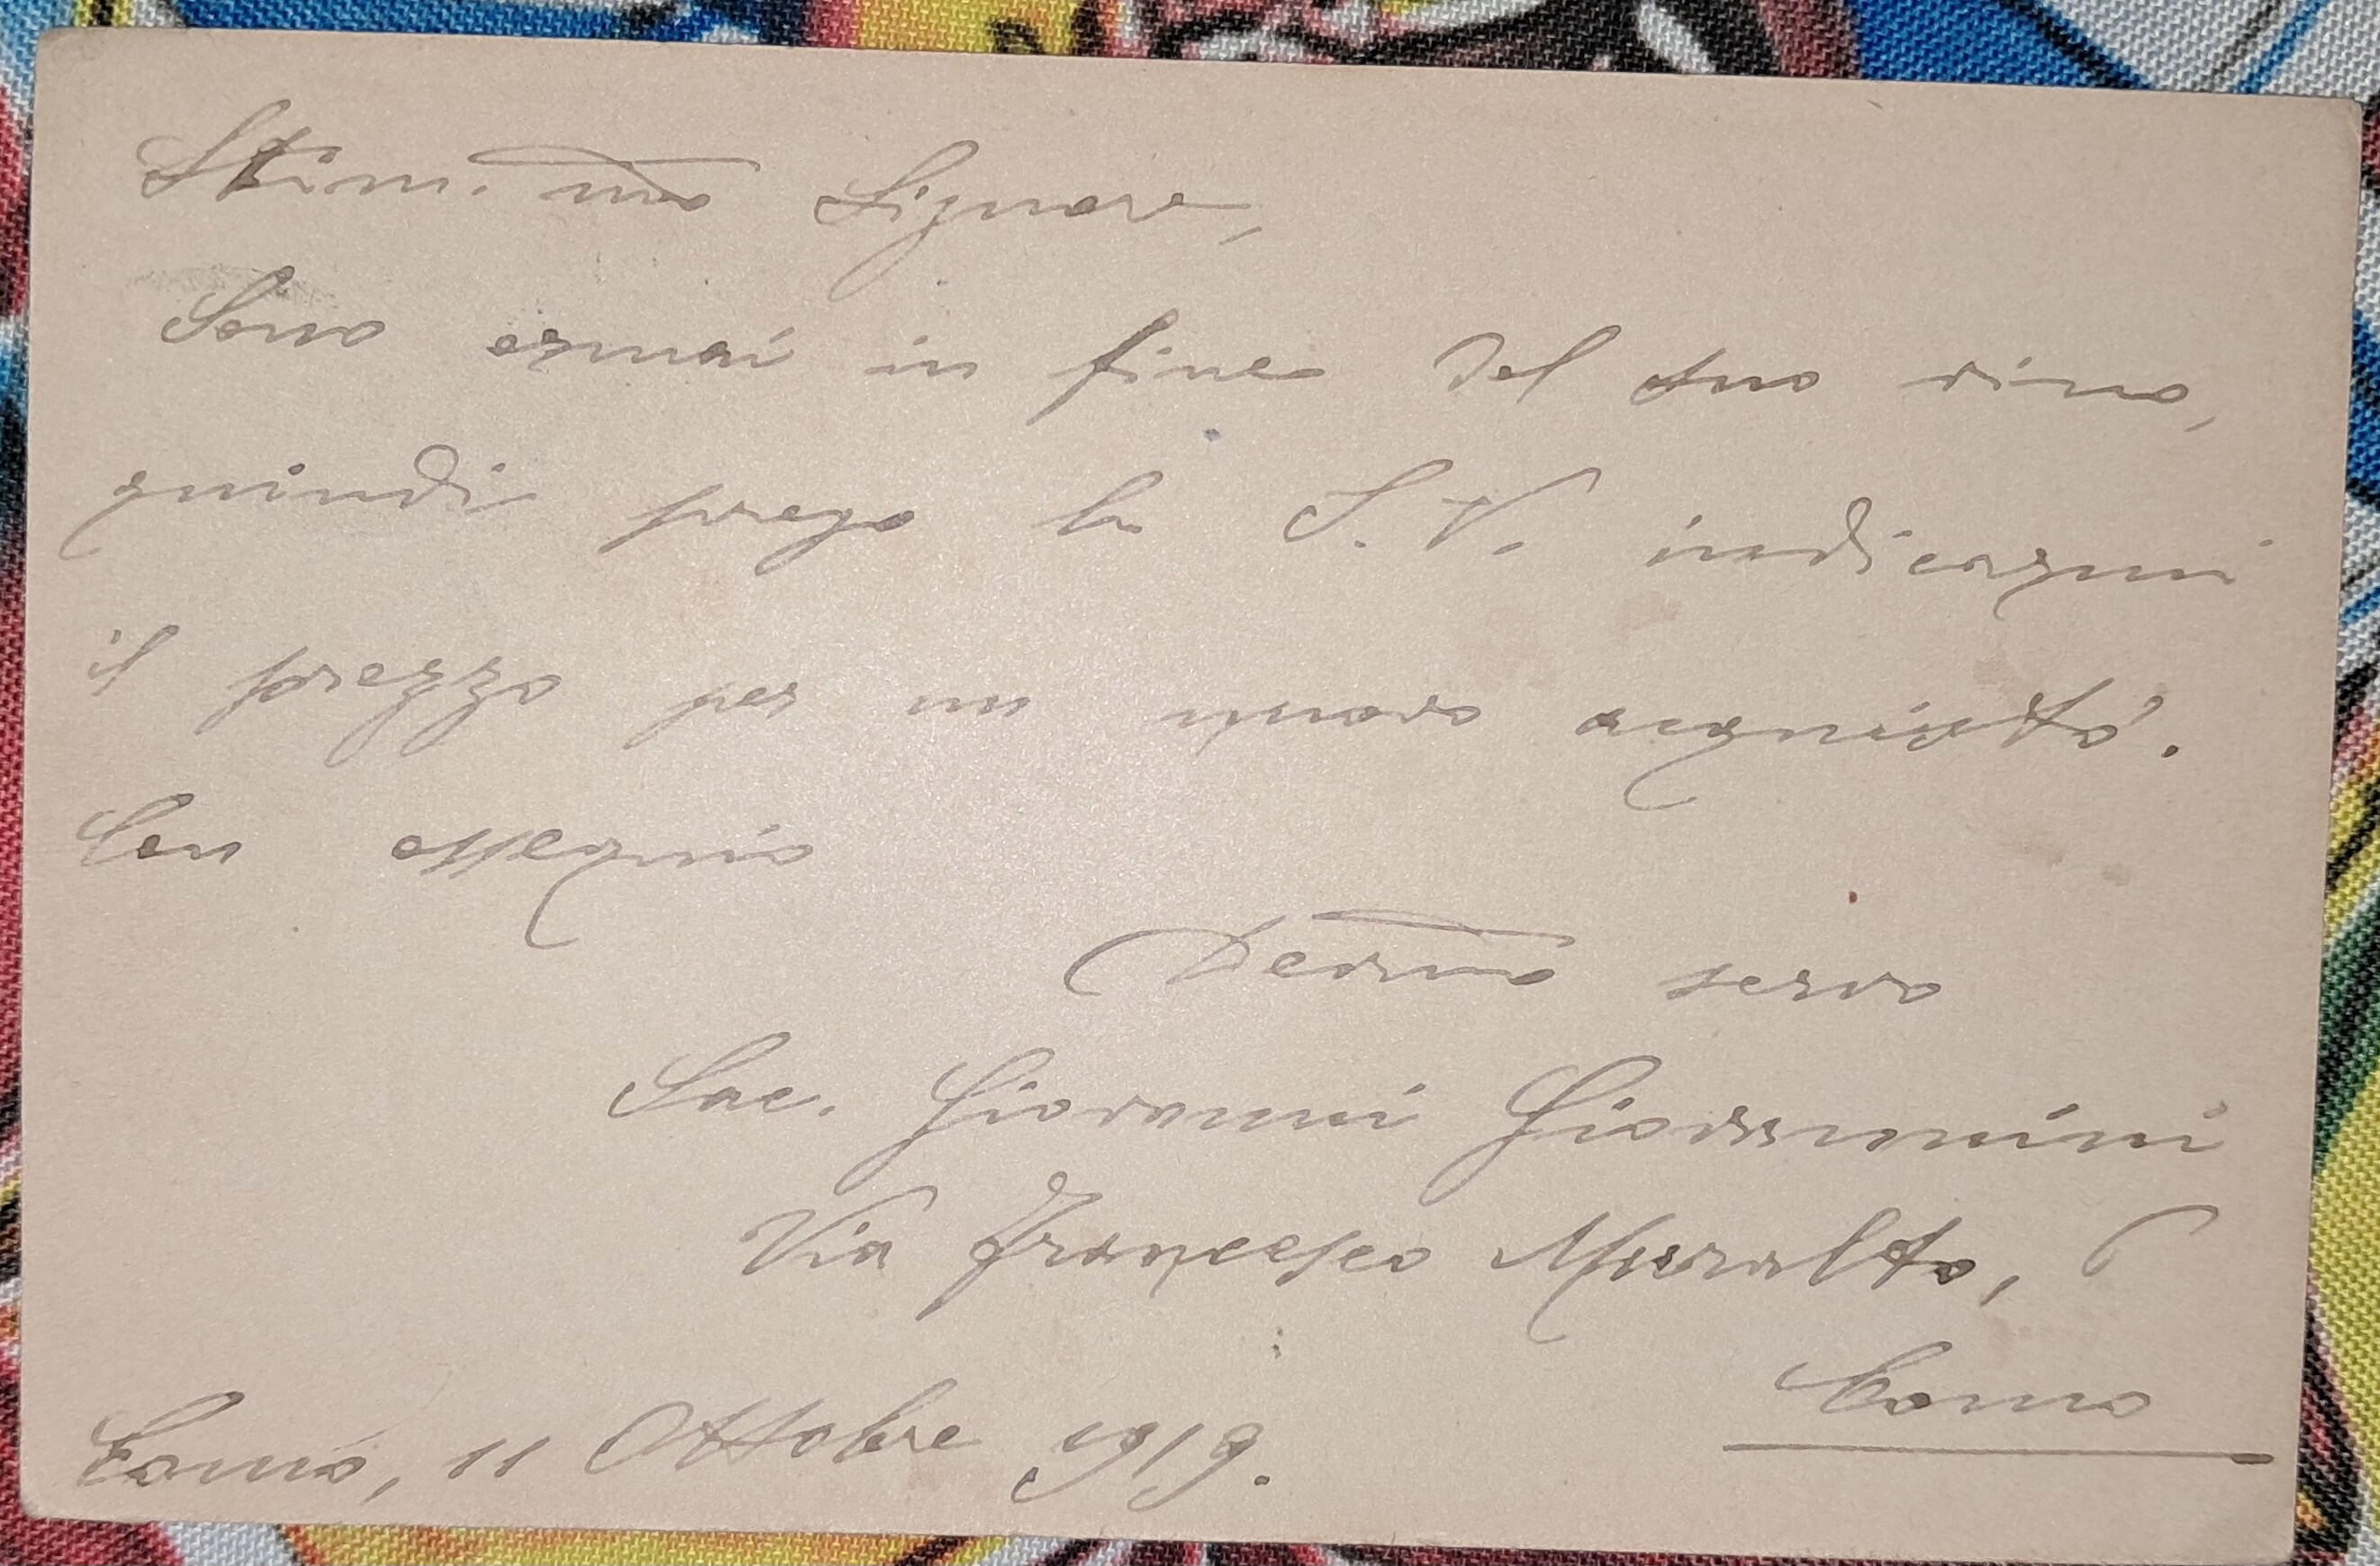 Stim. mo Signore,
Sono ormai in fine del suo vino,
quindi prego la S. V. indicarmi
il prezzo per un nuovo acquisto.
Con ossequio
Devmo servo
Sac. Giovanni Giovannini
Via Francesco Muralto,
Como
Como, 11 Ottobre 1919.